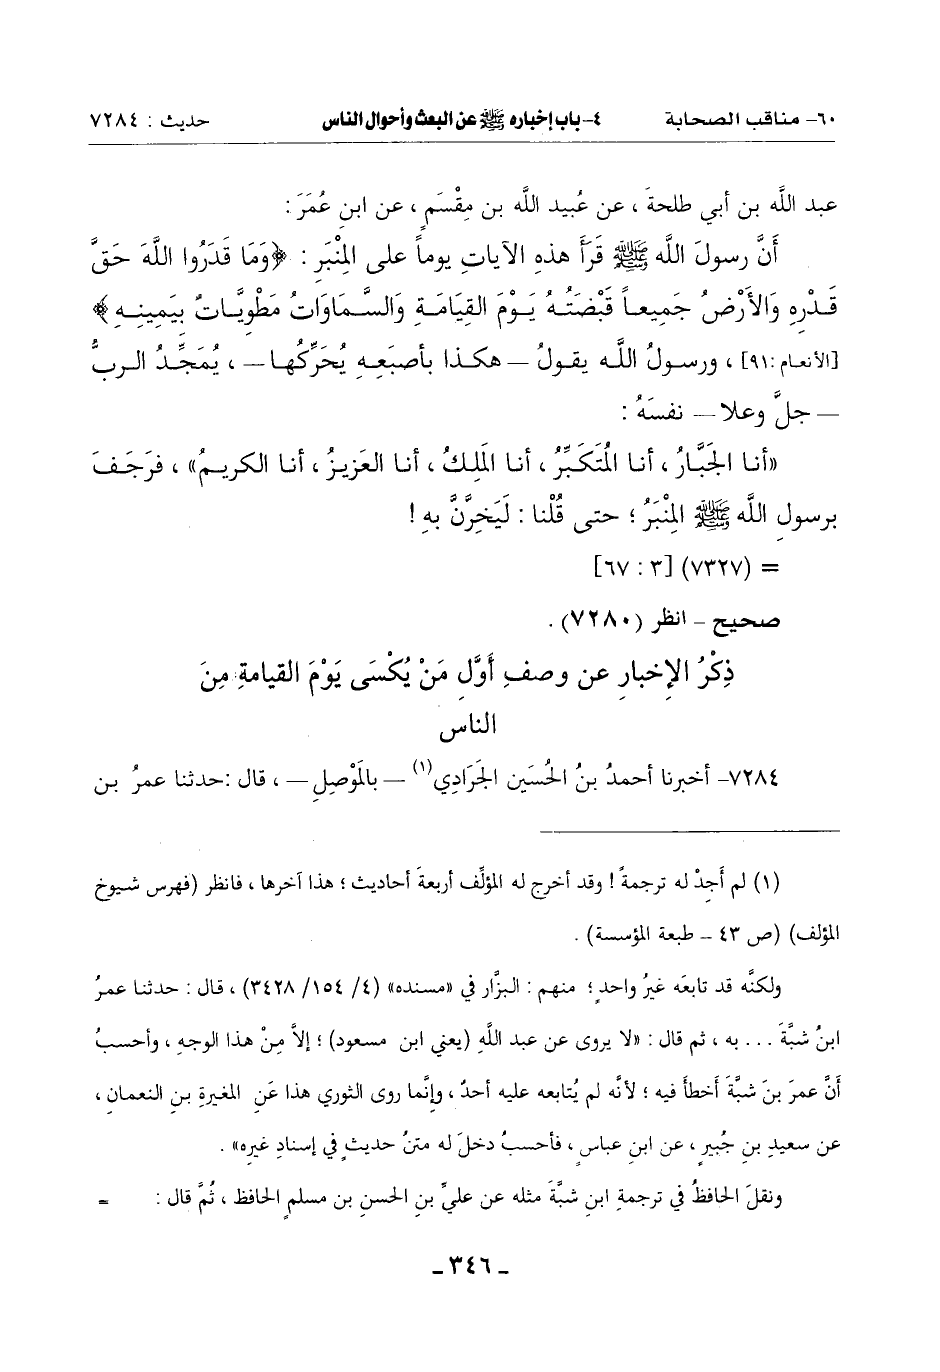 ٦٠- مناقب الصحابة ٤- باب إخباره ﷺ عن البعث وأحوال الناس حديث : ٧٢٨٤
عبد اللَّه بن أبي طلحةَ ، عن عُبيد اللَّه بن مِقْسَمٍ ، عن ابنِ عُمَرَ :
أَنَّ رسولَ اللَّه ﷺ قَرَأَ هذهِ الآياتِ يوماً على المِنْبَرِ : ﴿وَمَا قَدَرُوا اللَّهَ حَقَّ
قَدْرِهِ وَالأَرْضُ جَمِيعاً قَبْضَتُهُ يَوْمَ القِيَامَةِ وَالسَّمَاوَاتُ مَطْوِيَّاتٌ بِيَمِينِهِ﴾
[الأنعام :٩١] ، ورسولُ اللَّه يقولُ —هكذا بأصبَعِهِ يُحَرِّكُها— ، يُمَجِّدُ الربُّ
—جلَّ وعلا— نفسَهُ :
«أنا الجَبَّارُ ، أنا المُتَكَبِّرُ ، أنا المَلِكُ ، أنا العَزيزُ ، أنا الكريمُ» ، فرَجَفَ
برسولِ اللَّه ﷺ المِنْبَرُ ؛ حتى قُلْنا : لَيَخِرَّنَّ بهِ !
= (٧٣٢٧) [٣ : ٦٧]
صحيح - انظر (٧٢٨٠) .
ذِكْرُ الإخبارِ عن وصفِ أَوَّلِ مَنْ يُكْسَى يَوْمَ القيامةِ مِنَ
الناس
٧٢٨٤- أخبرنا أحمدُ بنُ الحُسَينِ الجَرَادِي(١) — بالمَوْصِلِ — ، قال :حدثنا عمرُ بن
(١) لم أَجِدْ له ترجمةً ! وقد أخرج له المؤلِّف أربعةَ أحاديث ؛ هذا آخرها ، فانظر (فهرس شيوخ
المؤلف) (ص ٤٣ - طبعة المؤسسة) .
ولكنَّه قد تابعَه غيرُ واحدٍ ؛ منهم : البزَّار في «مسنده» (٤/ ١٥٤/ ٣٤٢٨) ، قال : حدثنا عمرُ
ابنُ شبَّةَ ... به ، ثم قال : «لا يروى عن عبد اللَّهِ (يعني ابن مسعود) ؛ إلاَّ مِنْ هذا الوجهِ ، وأحسبُ
أنَّ عمرَ بنَ شبَّةَ أخطأَ فيه ؛ لأنَّه لم يُتابعه عليه أحدٌ ، وإنَّما روى الثوري هذا عَنِ المغيرةِ بنِ النعمان ،
عن سعيدِ بنِ جُبيرٍ ، عن ابنِ عباسٍ ، فأحسبُ دخلَ له متنُ حديثٍ في إسنادِ غيره» .
ونقلَ الحافظُ في ترجمةِ ابنِ شبَّةَ مثله عن عليِّ بنِ الحسنِ بن مسلمٍ الحافظ ، ثُمَّ قال : =
- ٣٤٦ -